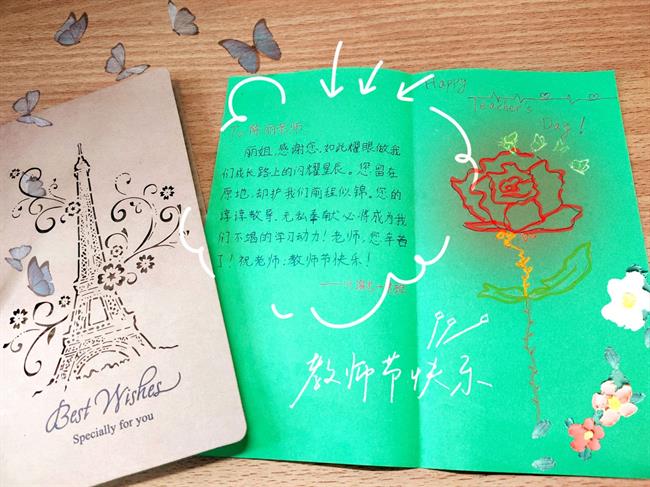 Best Wishes
Specially for you
To 陈丽老师
丽姐,感谢您,如此耀眼做我
们成长路上的闪耀星辰。您留在
原地,却护我们前程似锦。您的
谆谆教导,无私奉献必得成为我
们不竭的学习动力!老师,您辛苦
了!祝老师:教师节快乐!
Happy
Teacher's
Day!
教师节快乐